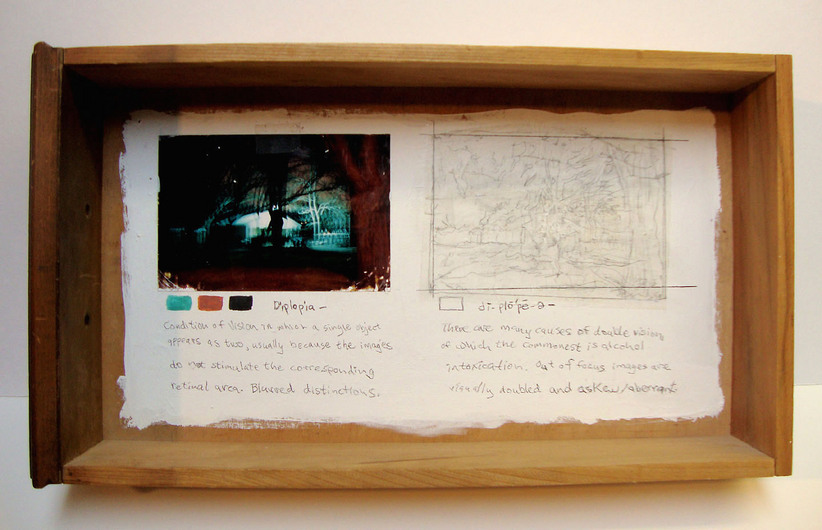 Diplopia –
Condition of Vision in which a single object
appears as two, usually because the images
do not stimulate the corresponding
retinal area. Blurred distinctions.
di-plō'pē-ə –
There are many causes of double vision
of which the commonest is alcohol
intoxication. Out of focus images are
visually doubled and askew/aberrant